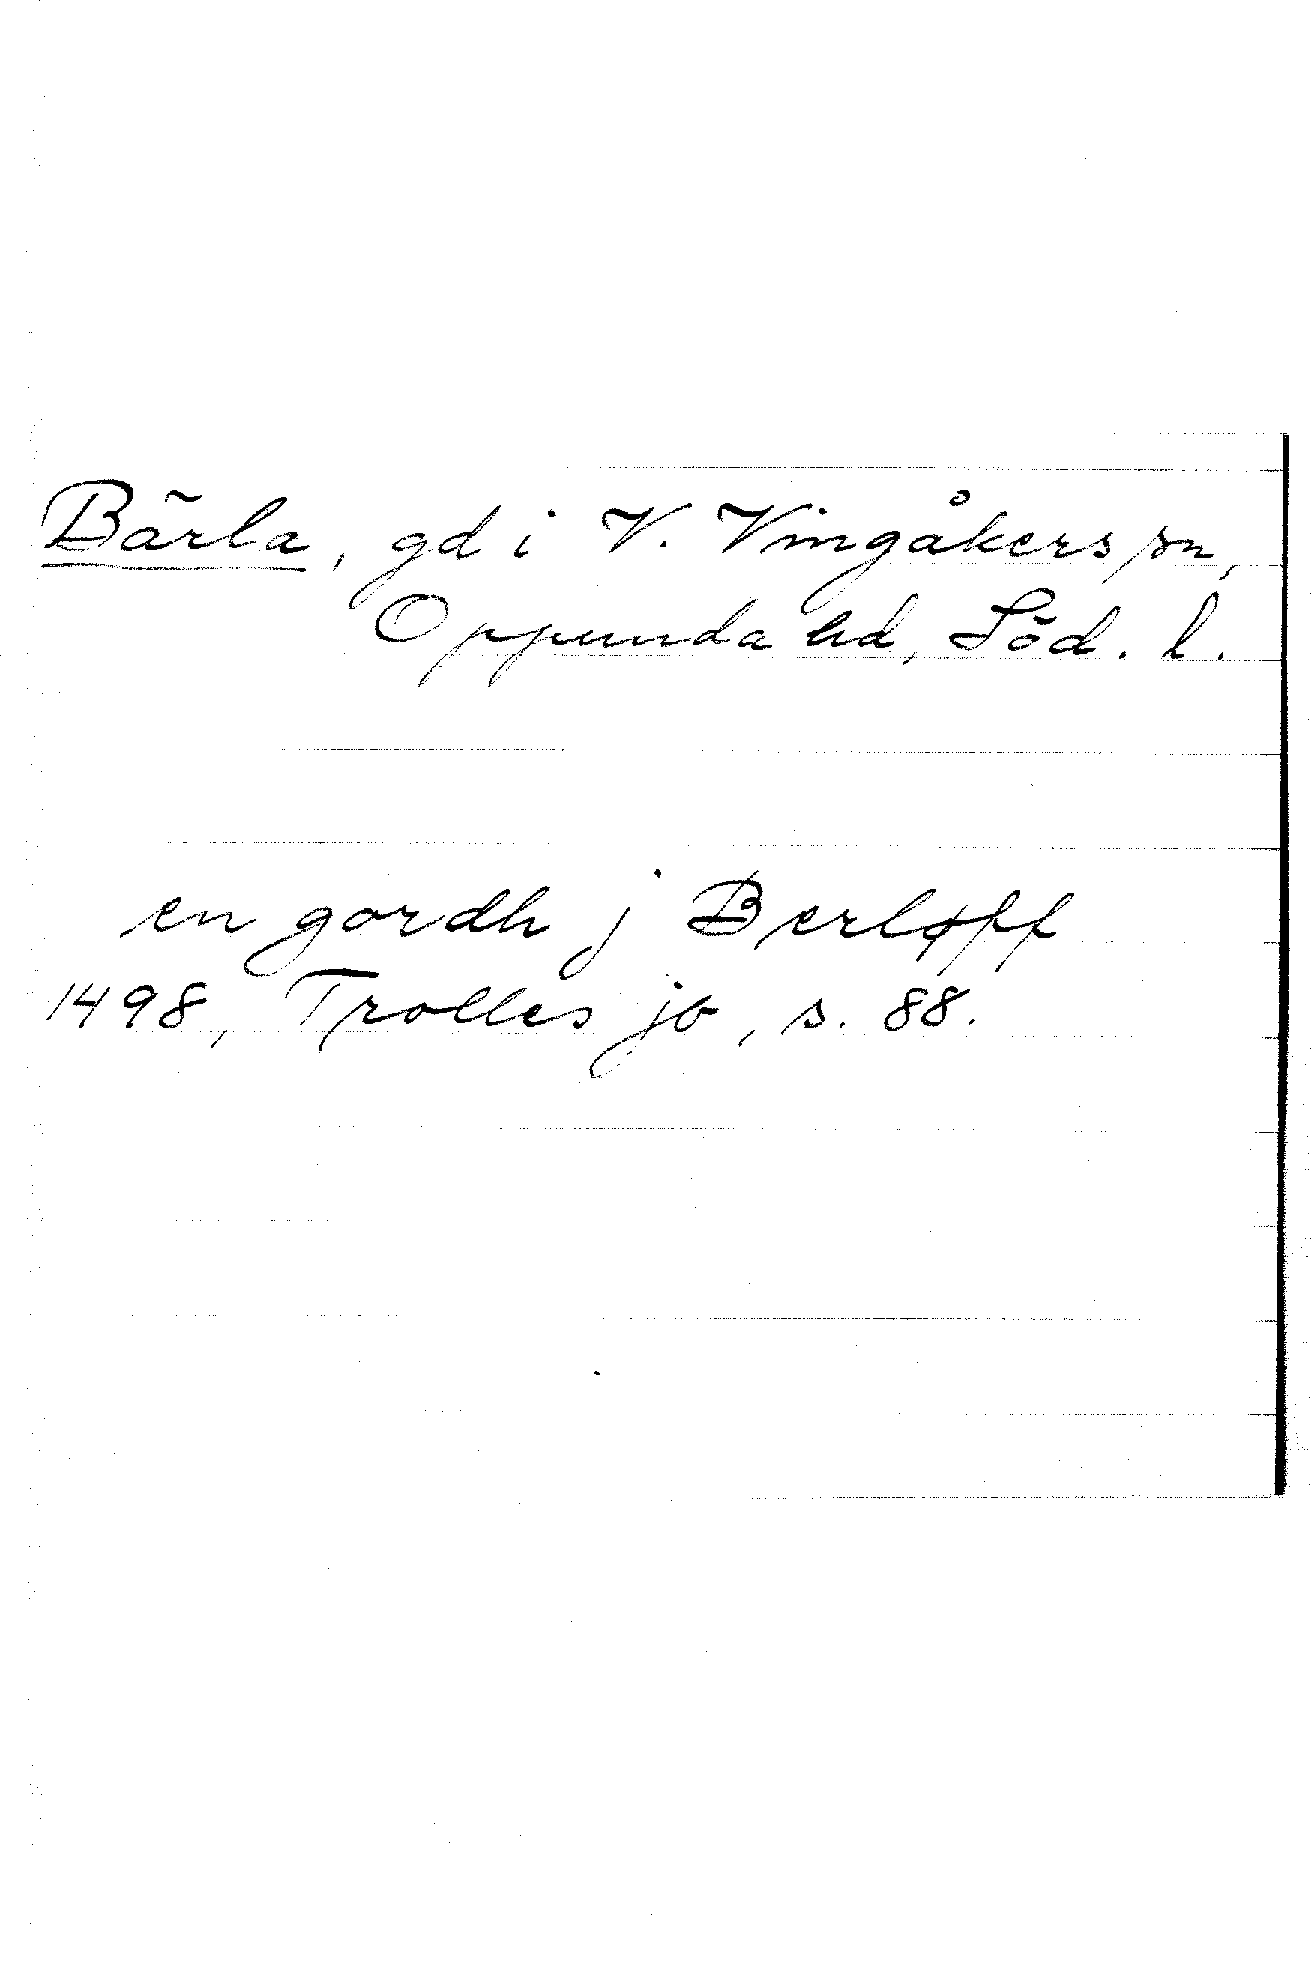 Bärla, gd i V. Vingåkers sn,
Oppunda hd, Söd. l.
en gordh j Berløpp
1498, Trolles jb, s. 88.